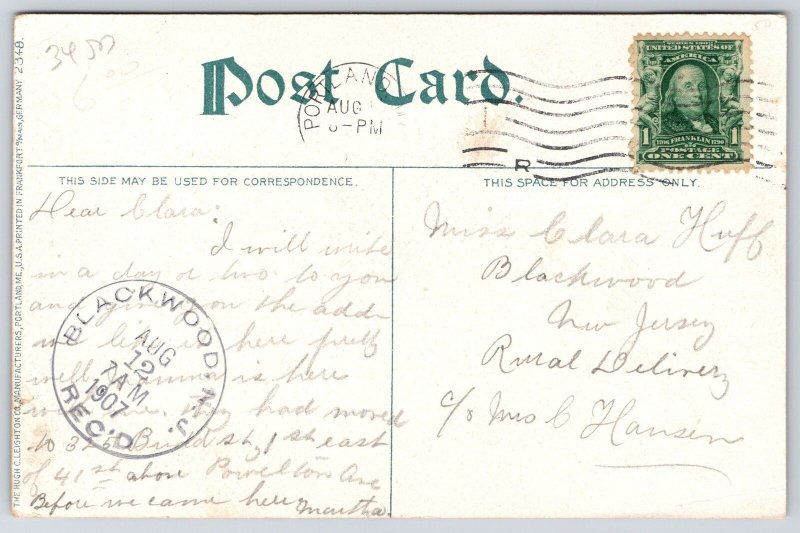 34 50
Post Card.
PORTLAND
AUG
6-PM
R
SERIES 1902
UNITED STATES OF
AMERICA
1 1706 FRANKLIN 1790 1
POSTAGE
ONE CENT
THIS SIDE MAY BE USED FOR CORRESPONDENCE.
THIS SPACE FOR ADDRESS ONLY.
THE HUGH C. LEIGHTON CO., MANUFACTURERS, PORTLAND, ME., U.S.A. PRINTED IN FRANKFORT o/MAIN, GERMANY 2348.
Dear Clara:
I will write
in a day or two to you
and give you the addr
we like it here pretty
well Mamma is here
with me. They had moved
to 325 Budd st, 1st east
of 41st above Powelton Ave
Before we came here
Martha.
BLACKWOOD, N.J.
AUG
12
7 AM
1907
REC'D.
Miss Clara Huff
Blackwood
New Jersey
Rural Delivery
c/o Mrs C Hansen